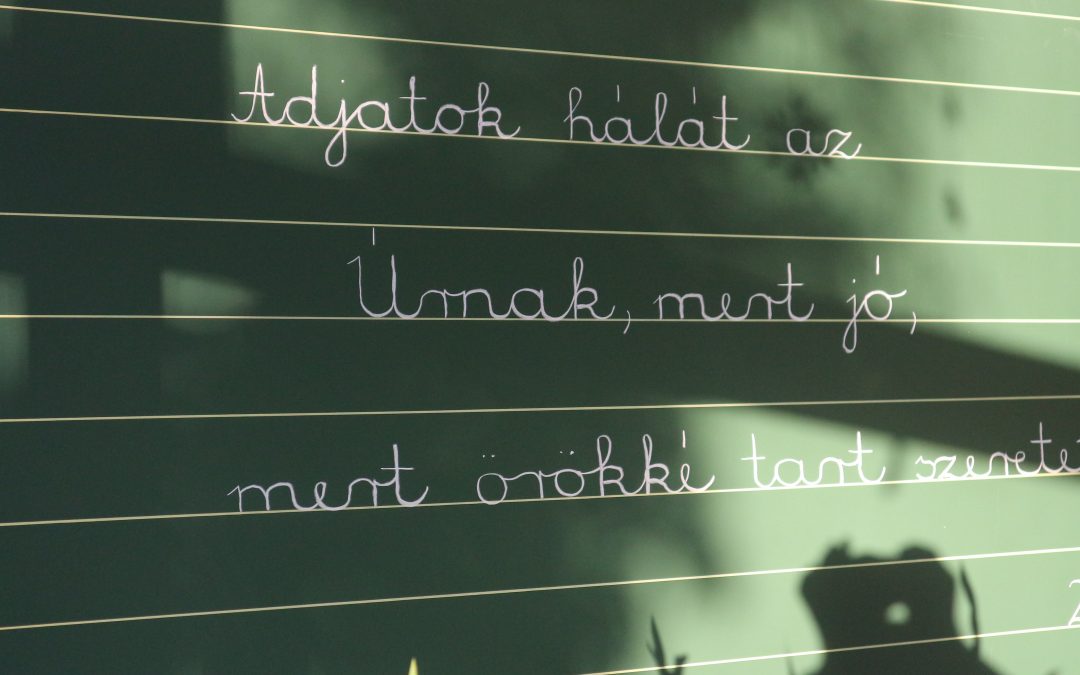 Adjatok hálát az
Úrnak, mert jó,
mert örökké tart